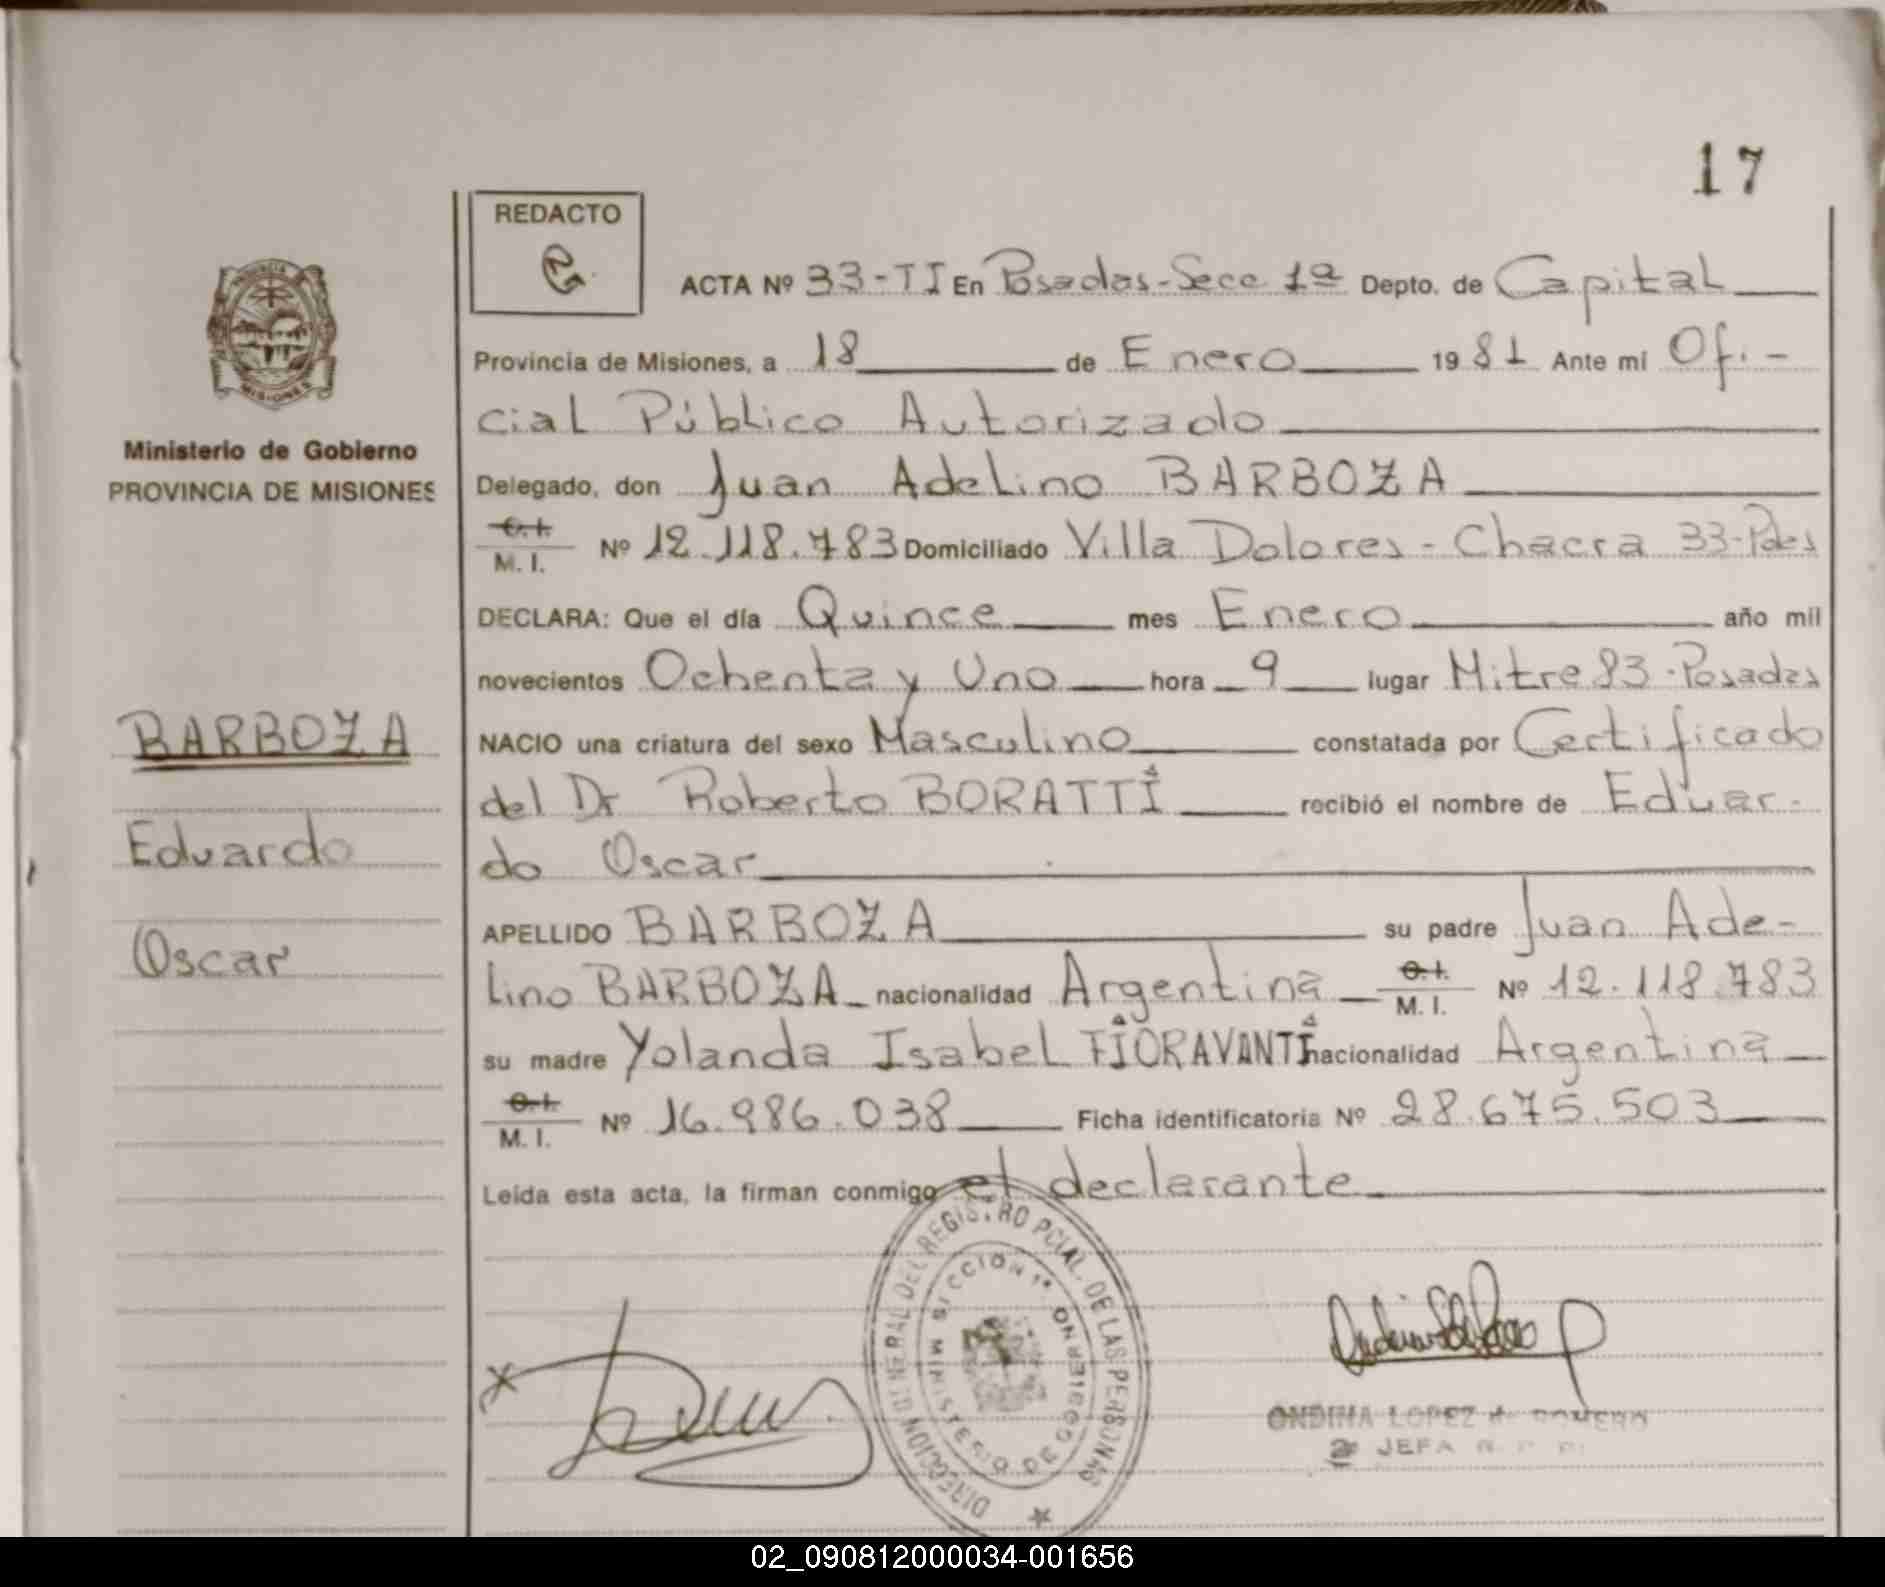 17
REDACTO
ACTA Nº 33-TI En Posadas-Secc 1ª Depto. de Capital
Provincia de Misiones, a 18 de Enero 1981 Ante mí Ofi.-
cial Público Autorizado
Ministerio de Gobierno
PROVINCIA DE MISIONES
Delegado, don Juan Adelino BARBOZA
C.I.
M. I. Nº 12.118.783 Domiciliado Villa Dolores - Chacra 33-Pdas
DECLARA: Que el día Quince mes Enero año mil
novecientos Ochenta y Uno hora 9 lugar Mitre 83-Posadas
BARBOZA
NACIO una criatura del sexo Masculino constatada por Certificado
del Dr Roberto BORATTI recibió el nombre de Eduar-
Eduardo
do Oscar
APELLIDO BARBOZA su padre Juan Ade-
Oscar
lino BARBOZA nacionalidad Argentina C.I. M. I. Nº 12.118.783
su madre Yolanda Isabel FIORAVANTI nacionalidad Argentina
C.I.
M. I. Nº 16.986.038 Ficha identificatoria Nº 28.675.503
Leída esta acta, la firman conmigo el declarante
DIRECCION GENERAL DEL REGISTRO PCIAL. DE LAS PERSONAS
SECCION 1ª
MINISTERIO DE GOBIERNO
ONDINA LOPEZ de ROMERO
2ª JEFA
PROVINCIA
MISIONES
02_090812000034-001656